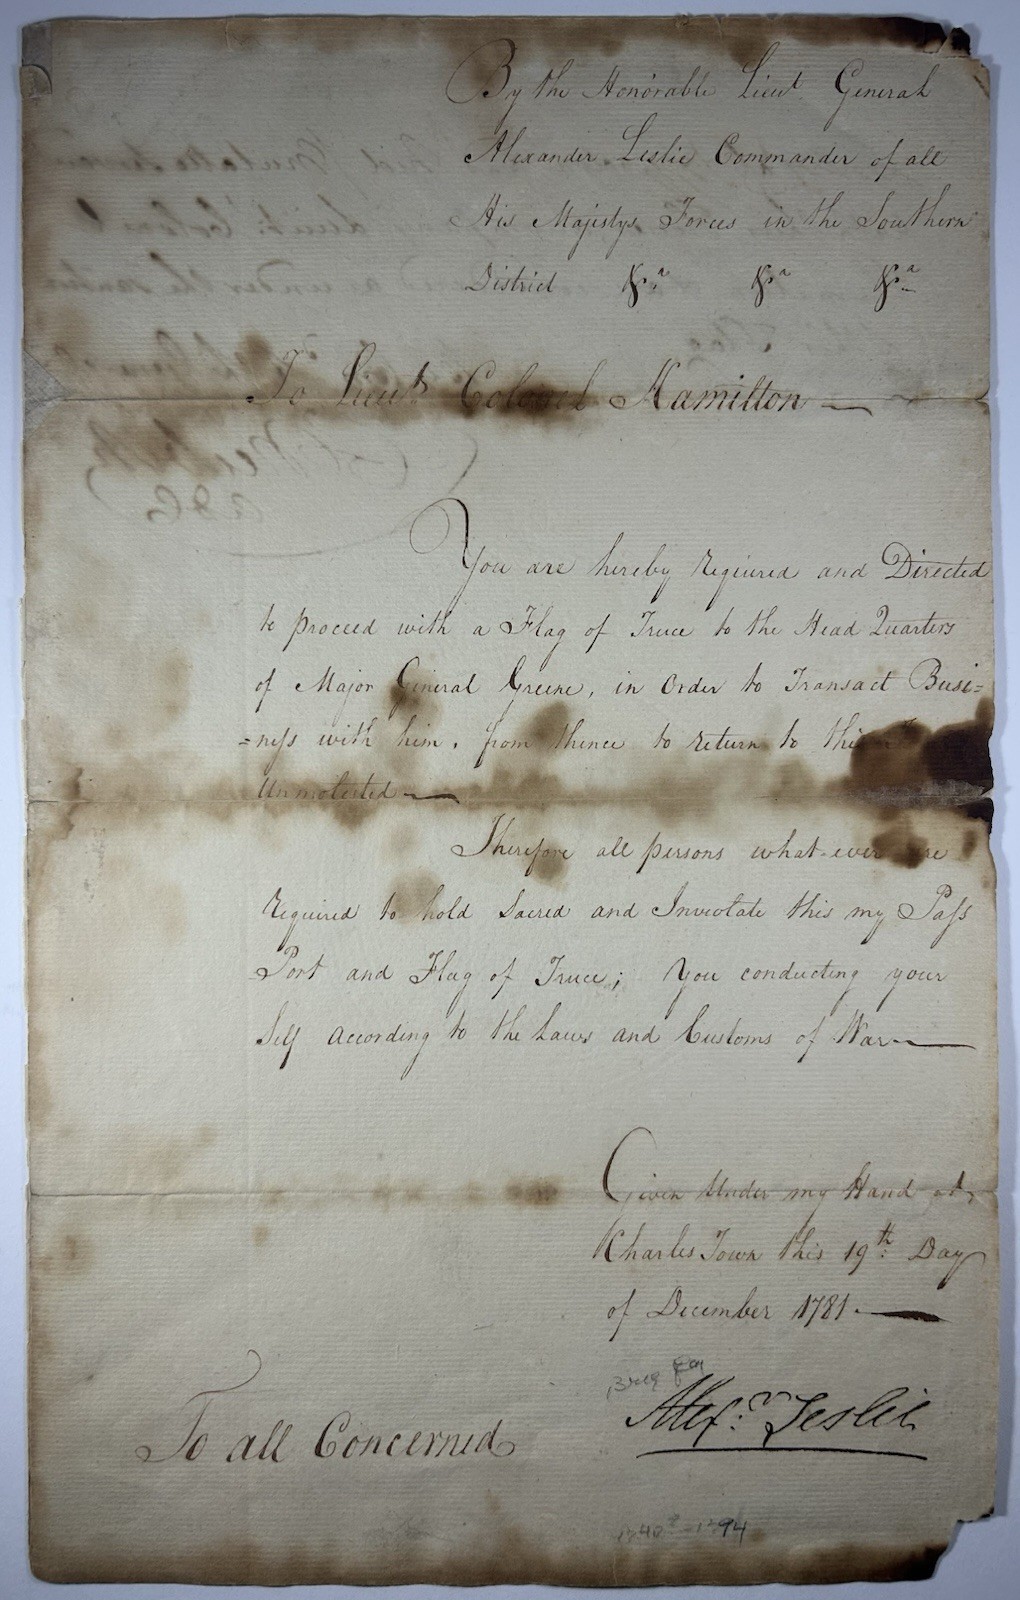 By the Honorable Lieut General
Alexander Leslie Commander of all
His Majestys Forces in the Southern
District &ca &ca &ca
To Lieut Colonel Hamilton
You are hereby required and Directed
to proceed with a Flag of Truce to the Head Quarters
of Major General Greene, in Order to Transact Busi=
=ness with him, from thence to return to this
Unmolested
Therefore all persons what-ever are
required to hold Sacred and Inviolate this my Pass
Port and Flag of Truce; You conducting your
Self according to the Laws and Customs of War
Given Under my Hand at
Charles Town this 19th Day
of December 1781.
Alexr Leslie
To all Concerned